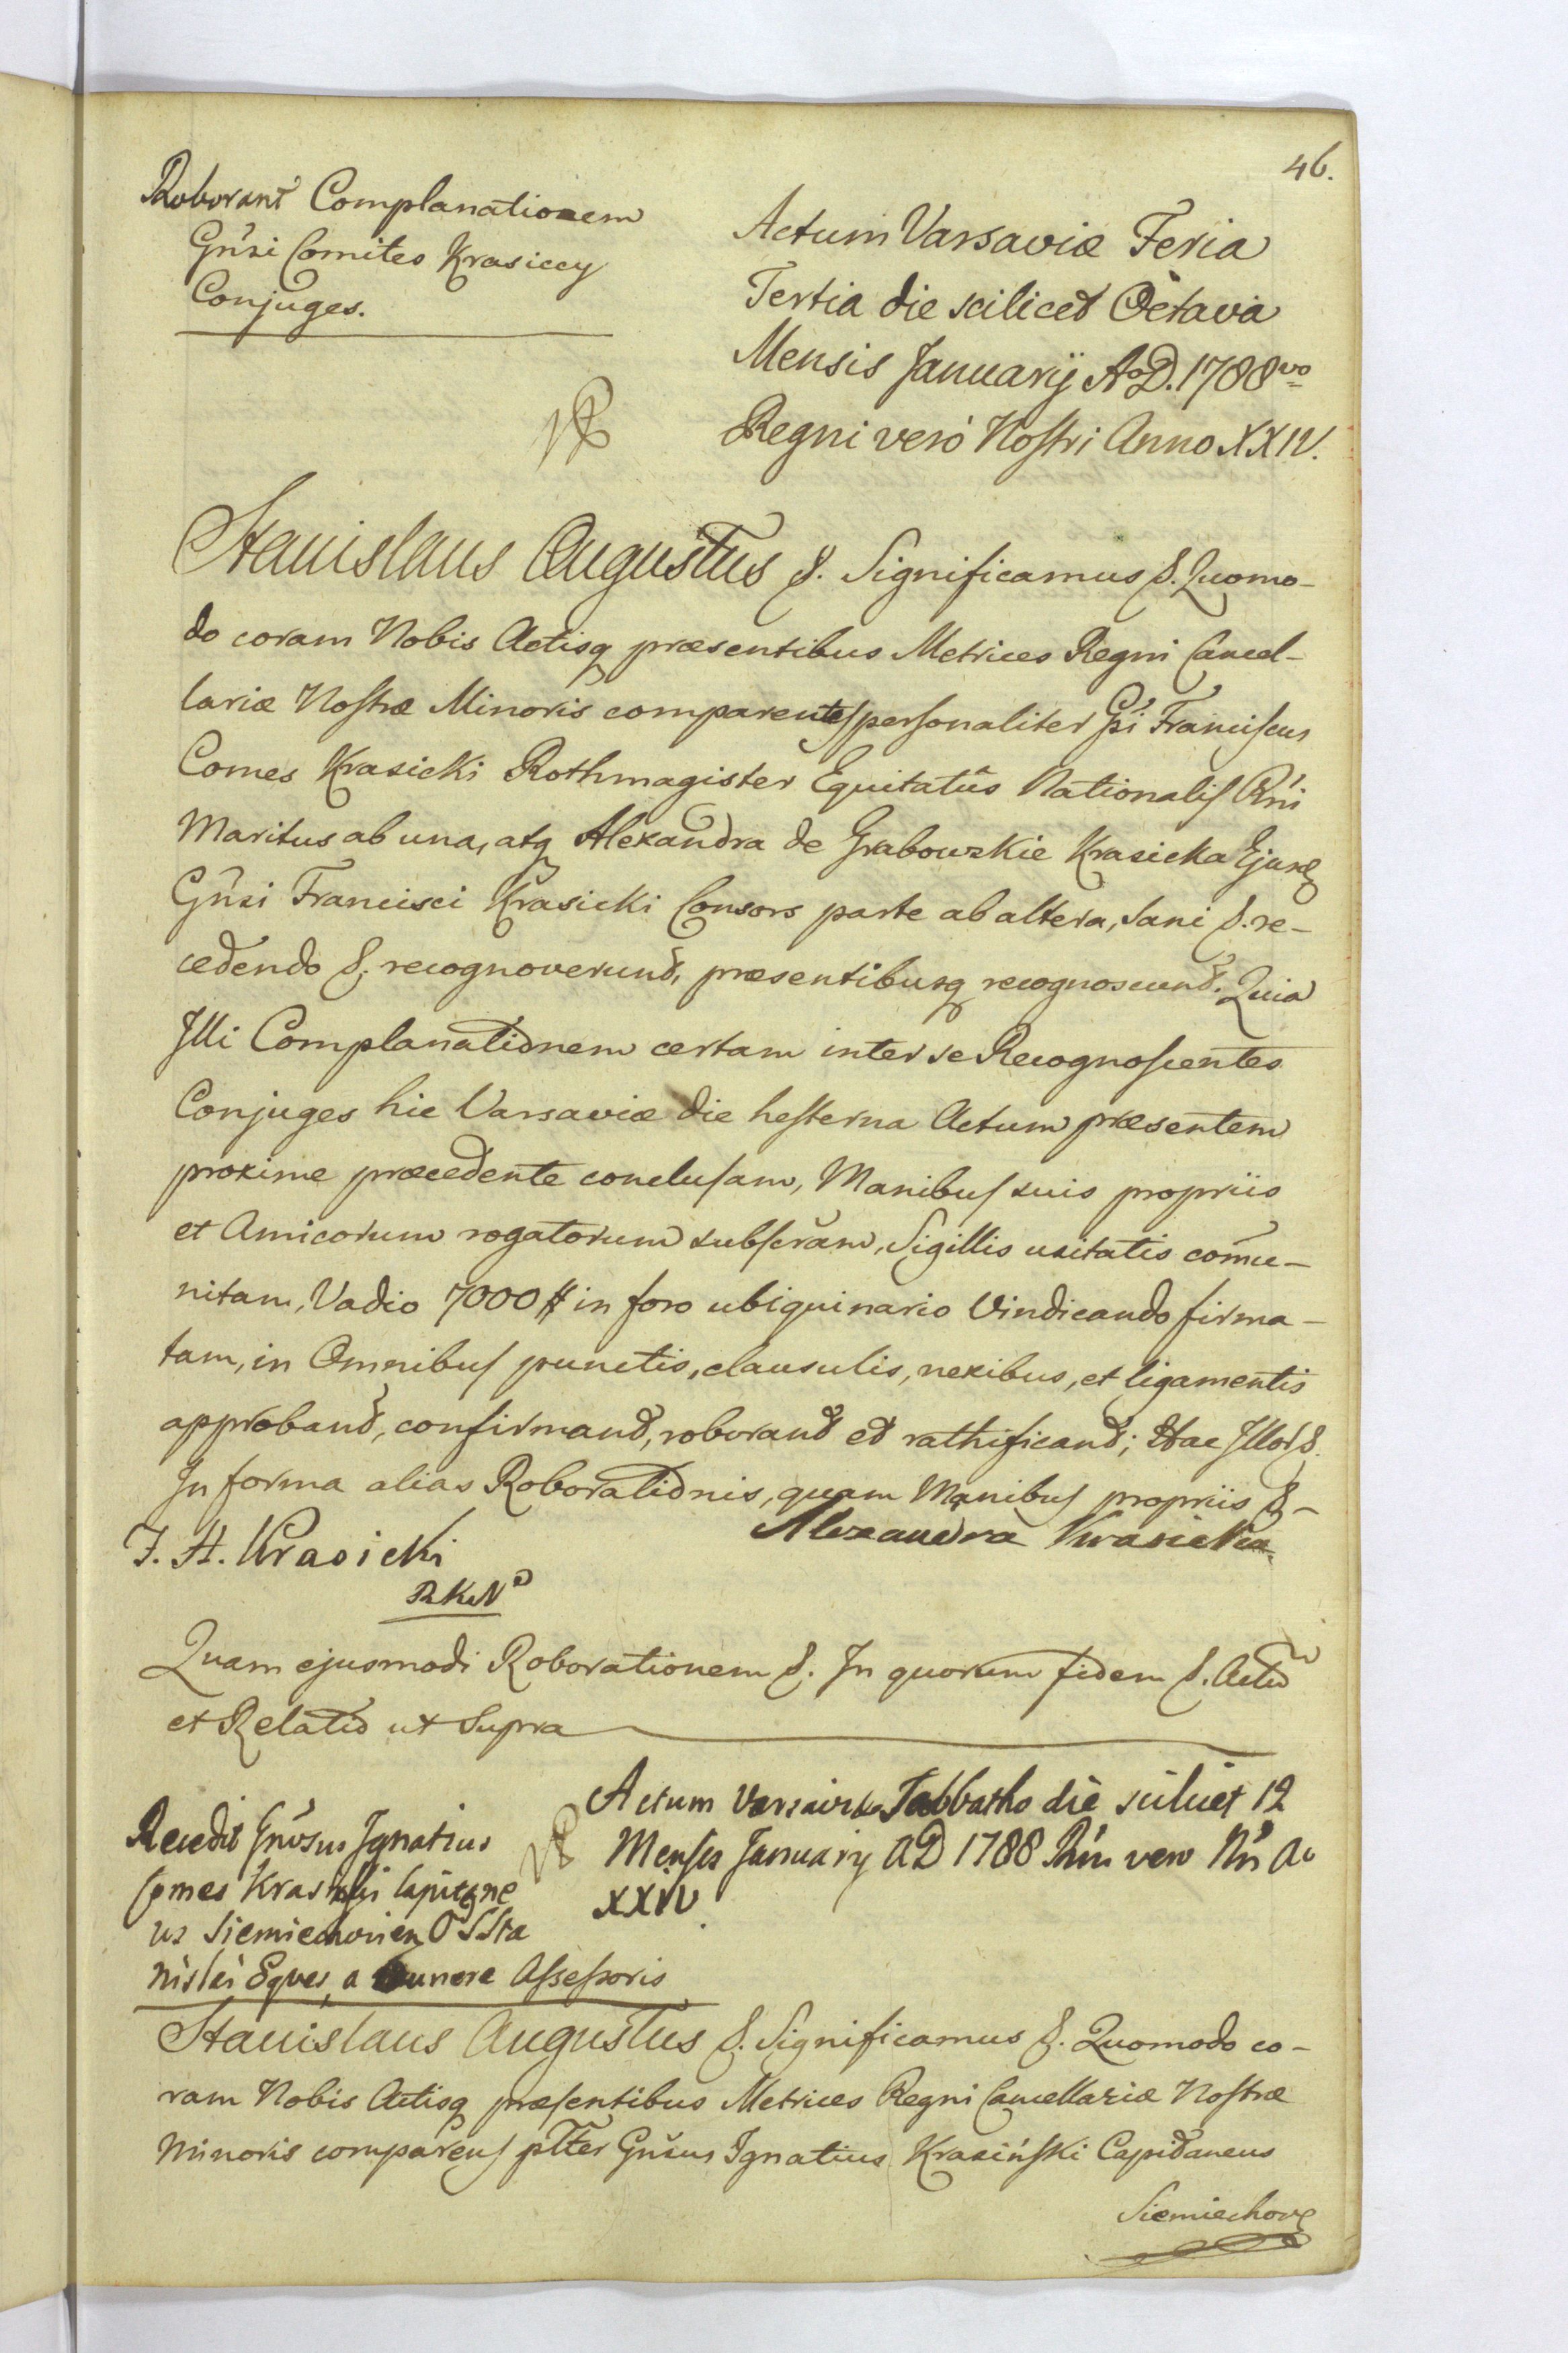 46.
Roborant Complanationem
Gnsi Comites Krasiccy
Conjuges.
Actum Varsaviæ Feria
Tertia die scilicet Octava
Mensis Januarij AoD. 1788vo
Regni veró Nostri Anno XXIV.
Stanislaus Augustus &. Significamus &. Quomo-
do coram Nobis Actisq præsentibus Metrices Regni Cancel-
lariæ Nostræ Minoris comparentes personaliter Gsi Franciscus
Comes Krasicki Rothmagister Equitatûs Nationalis Rni
Maritus ab una, atq Alexandra de Grabowskie Krasicka Ejusd
Gnsi Francisci Krasicki Consors parte ab altera, sani &. re-
cedendo &; recognoverunt, præsentibusq recognoscunt. Quia
Illi Complanationem certam inter se Recognoscentes
Conjuges hic Varsaviæ die hesterna Actum præsentem
proxime præcedente conclusam, Manibus suis propriis
et Amicorum rogatorum subscram, Sigillis usitatis comu-
nitam, Vadio 7000 # in foro ubiquinario Vindicando firma-
tam, in Omnibus punctis, clausulis, nexibus, et ligamentis
approband, confirmand, roborand et rathificand; Hac Illor &.
In forma alias Roborationis, quam Manibus propriis &-
F. H. Krasicki
R.K.N
Alexandra Krasicka
Quam ejusmodi Roborationem &. In quorum fidem &. Actu
et Relatio ut Supra
Recedit Gnosus Ignatius
Comes Krasinski Capitane
us Siemiechovien O S Sta
nislai Eques, a munere Assessoris
Actum Varsaviæ Sabbatho die scilicet 12
Mensis January AD 1788 Rni vero Nri Ao
XXIV.
Stanislaus Augustus &. Significamus &. Quomodo co-
ram Nobis Actisq præsentibus Metrices Regni Cancellariæ Nostræ
Minoris comparens pltter Gnsus Ignatius Krasiński Capitaneus
Siemiechov